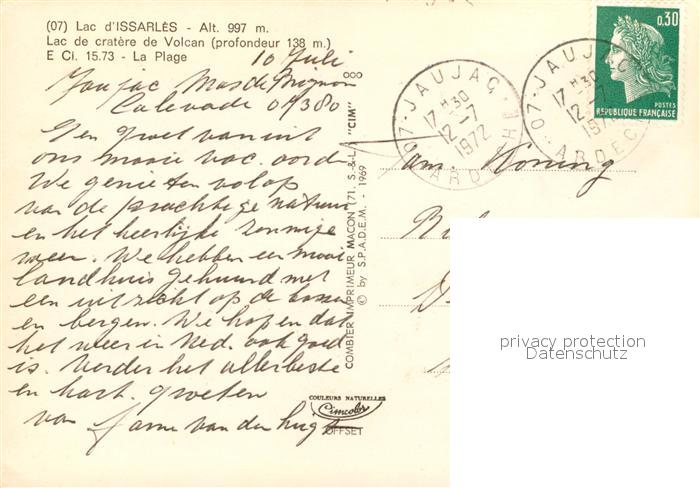 (07) Lac d'ISSARLÈS - Alt. 997 m.
Lac de cratère de Volcan (profondeur 138 m.)
E Ci. 15.73 - La Plage
10 Juli
Jaujac Mas de Mignon
Calevade 07380
Een groet vanuit
ons mooie vac. oord
We genieten volop
van de prachtige natuur
en het heerlijke zonnige
weer. We hebben een mooi
landhuis gehuurd met
een uitzicht op de bossen
en bergen. We hopen dat
het weer in Ned. ook goed
is. Verder het allerbeste
en hart. groeten
van fam. van der
COMBIER IMPRIMEUR MACON (71. S.-&-L.) "CIM"
© by S.P.A.D.E.M. - 1969
COULEURS NATURELLES
Cimcolor
OFFSET
07-JAUJAC
17 H 30
12-7
1972
ARDECHE
07-JAUJAC
17 H 30
12-7
1972
ARDECHE
0,30
POSTES
REPUBLIQUE FRANÇAISE
fam. Koning
privacy protection
Datenschutz